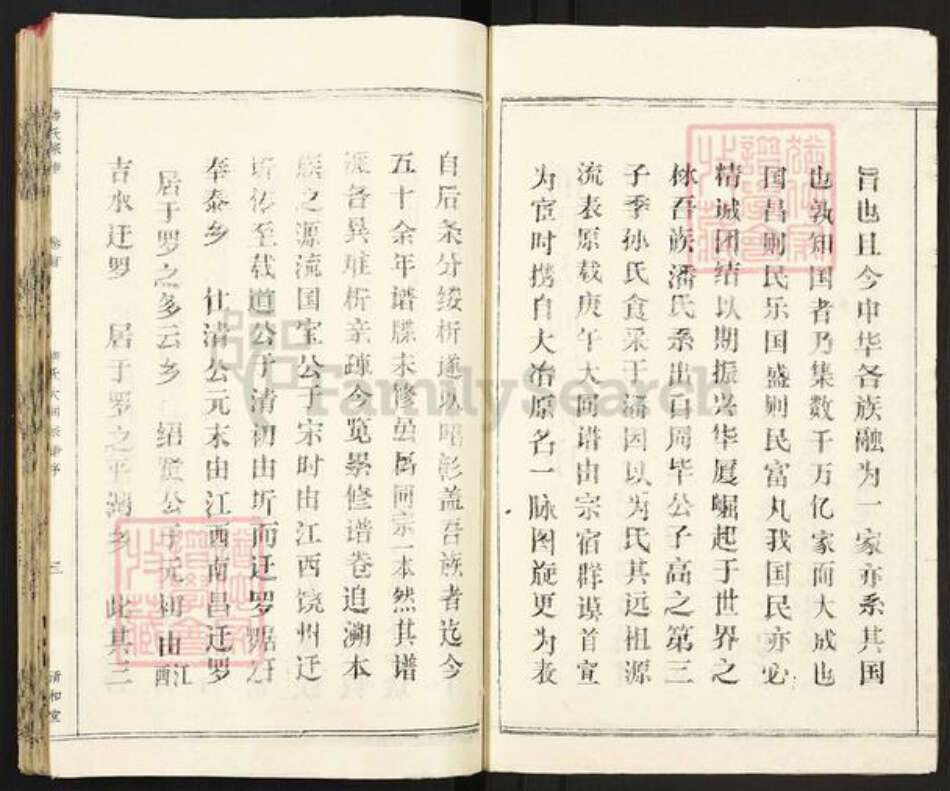 旨也且今中华各族融为一家亦系其国
也孰知国者乃集数千万亿家而大成也
国昌则民乐国盛则民富凡我国民亦必
精诚团结以期振兴华厦崛起于世界之
林吾族潘氏系出自周毕公子高之第三
子季孙氏食采于潘因以为氏其远祖源
流表原载庚午大同谱由宗宿群谟首宣
为宦时携自大冶原名一脉图旋更为表
自后条分缕析遂以昭彰盖吾族者迄今
五十余年谱牒未修虽属同宗一本然其谱
派各异难析亲疎今览景修谱卷追溯本
之源流国宝公于宋时由江西饶州迁
圻传至载道公于清初由圻而迁罗
奉泰乡 仕清公元末由江西南昌迁罗
居于罗之多云乡 绍贤公于元初由江西
吉水迁罗 居于罗之平湖乡 此其三
清和堂
FamilySearch